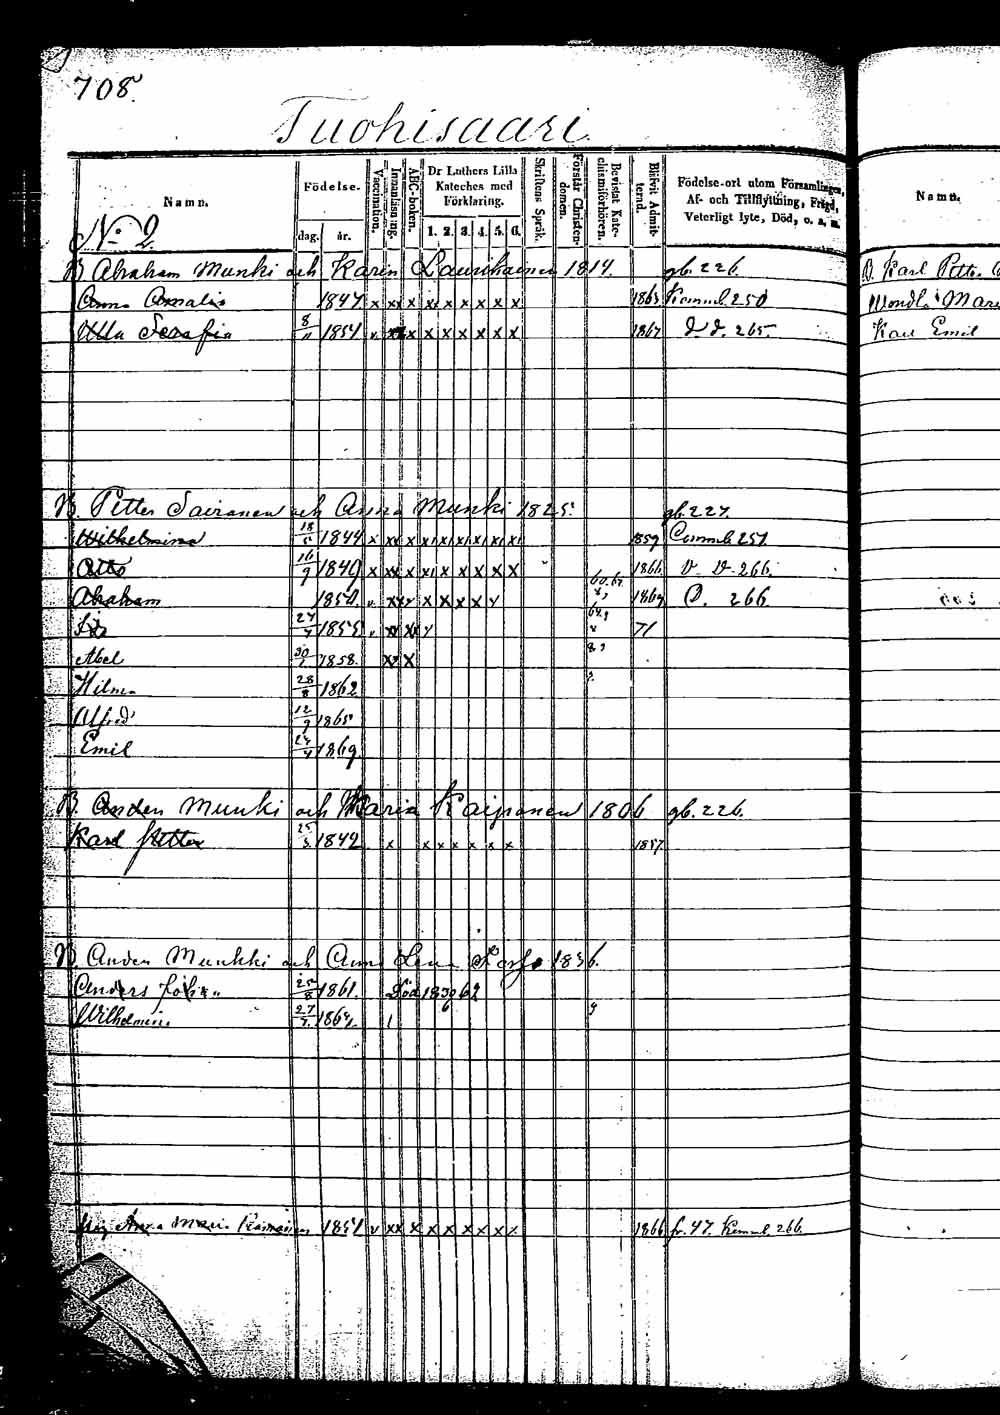 708.
Tuohisaari.
Namn.
Födelse-
dag. år.
Vaccination.
Innanläsning.
ABC-boken.
Dr Luthers Lilla Kateches med Förklaring.
1. 2. 3. 4. 5. 6.
Skriftens Språk.
Förstår Christendomen.
Bevistat Katechismiförhören.
Blifvit Admitternd.
Födelse-ort utom Församlingen, Af- och Tillflyttning, Frägd, Veterligt lyte, Död, o. a. m.
Namn.
No 2.
B. Abraham Munki och Karin Laurikainen 1814. gb. 226.
Anna Amalia 1847 x xx x x x x x x x 1863 Komml. 250
Ulla Serafia 8/11 1851 v. x x x x x x x x 1867 d. d. 265.
B. Petter Sairanen och Anna Munki 1825. gb. 227.
Wilhelmina 18/5 1844 x xx x 1859 Comml. 251.
Otto 16/9 1849 x xx x x x x x x x 1866 d. d. 266.
Abraham 1850. x x x x 1869 D. 266
24/4 1855 71
Abel 30/1 1858. xx x
Hilma 28/8 1862
Alfred 12/9 1865
Emil 24/4 1869.
B. Anders Munki och Maria Kaiponen 1806 gb. 226.
Karl Petter 25/3 1842 x x x x x x x 1857.
B. Anders Munkki och Anna Lena 1836.
Anders 25/8 1861. Död 18 30/6 62
Wilhelmina 27/7 1864.
Anna Maria 1851 v xx x x x x x x x 1866 fr. 47. Komml. 266.
B. Karl Petter
Mari
Karl Emil